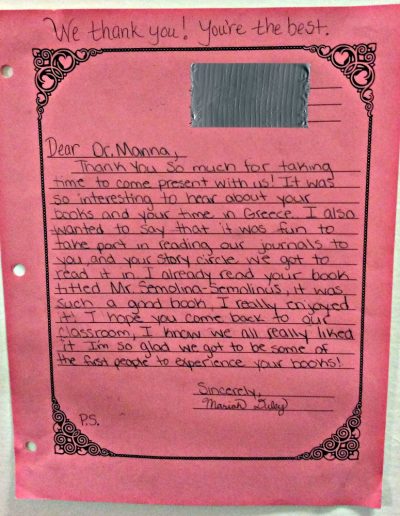 We thank you! You're the best.
Dear Dr. Manna,
Thank You So much for taking
time to come present with us! It was
so interesting to hear about your
books and your time in Greece. I also
wanted to say that it was fun to
take part in reading our journals to
you, and your story circle we got to
read it in. I already read your book
titled Mr. Semolina-Semolinus, it was
such a good book, I really enjoyed
it! I hope you come back to our
classroom, I know we all really liked
it. I'm so glad we got to be some of
the first people to experience your books!
Sincerely,
Mariah
P.S.